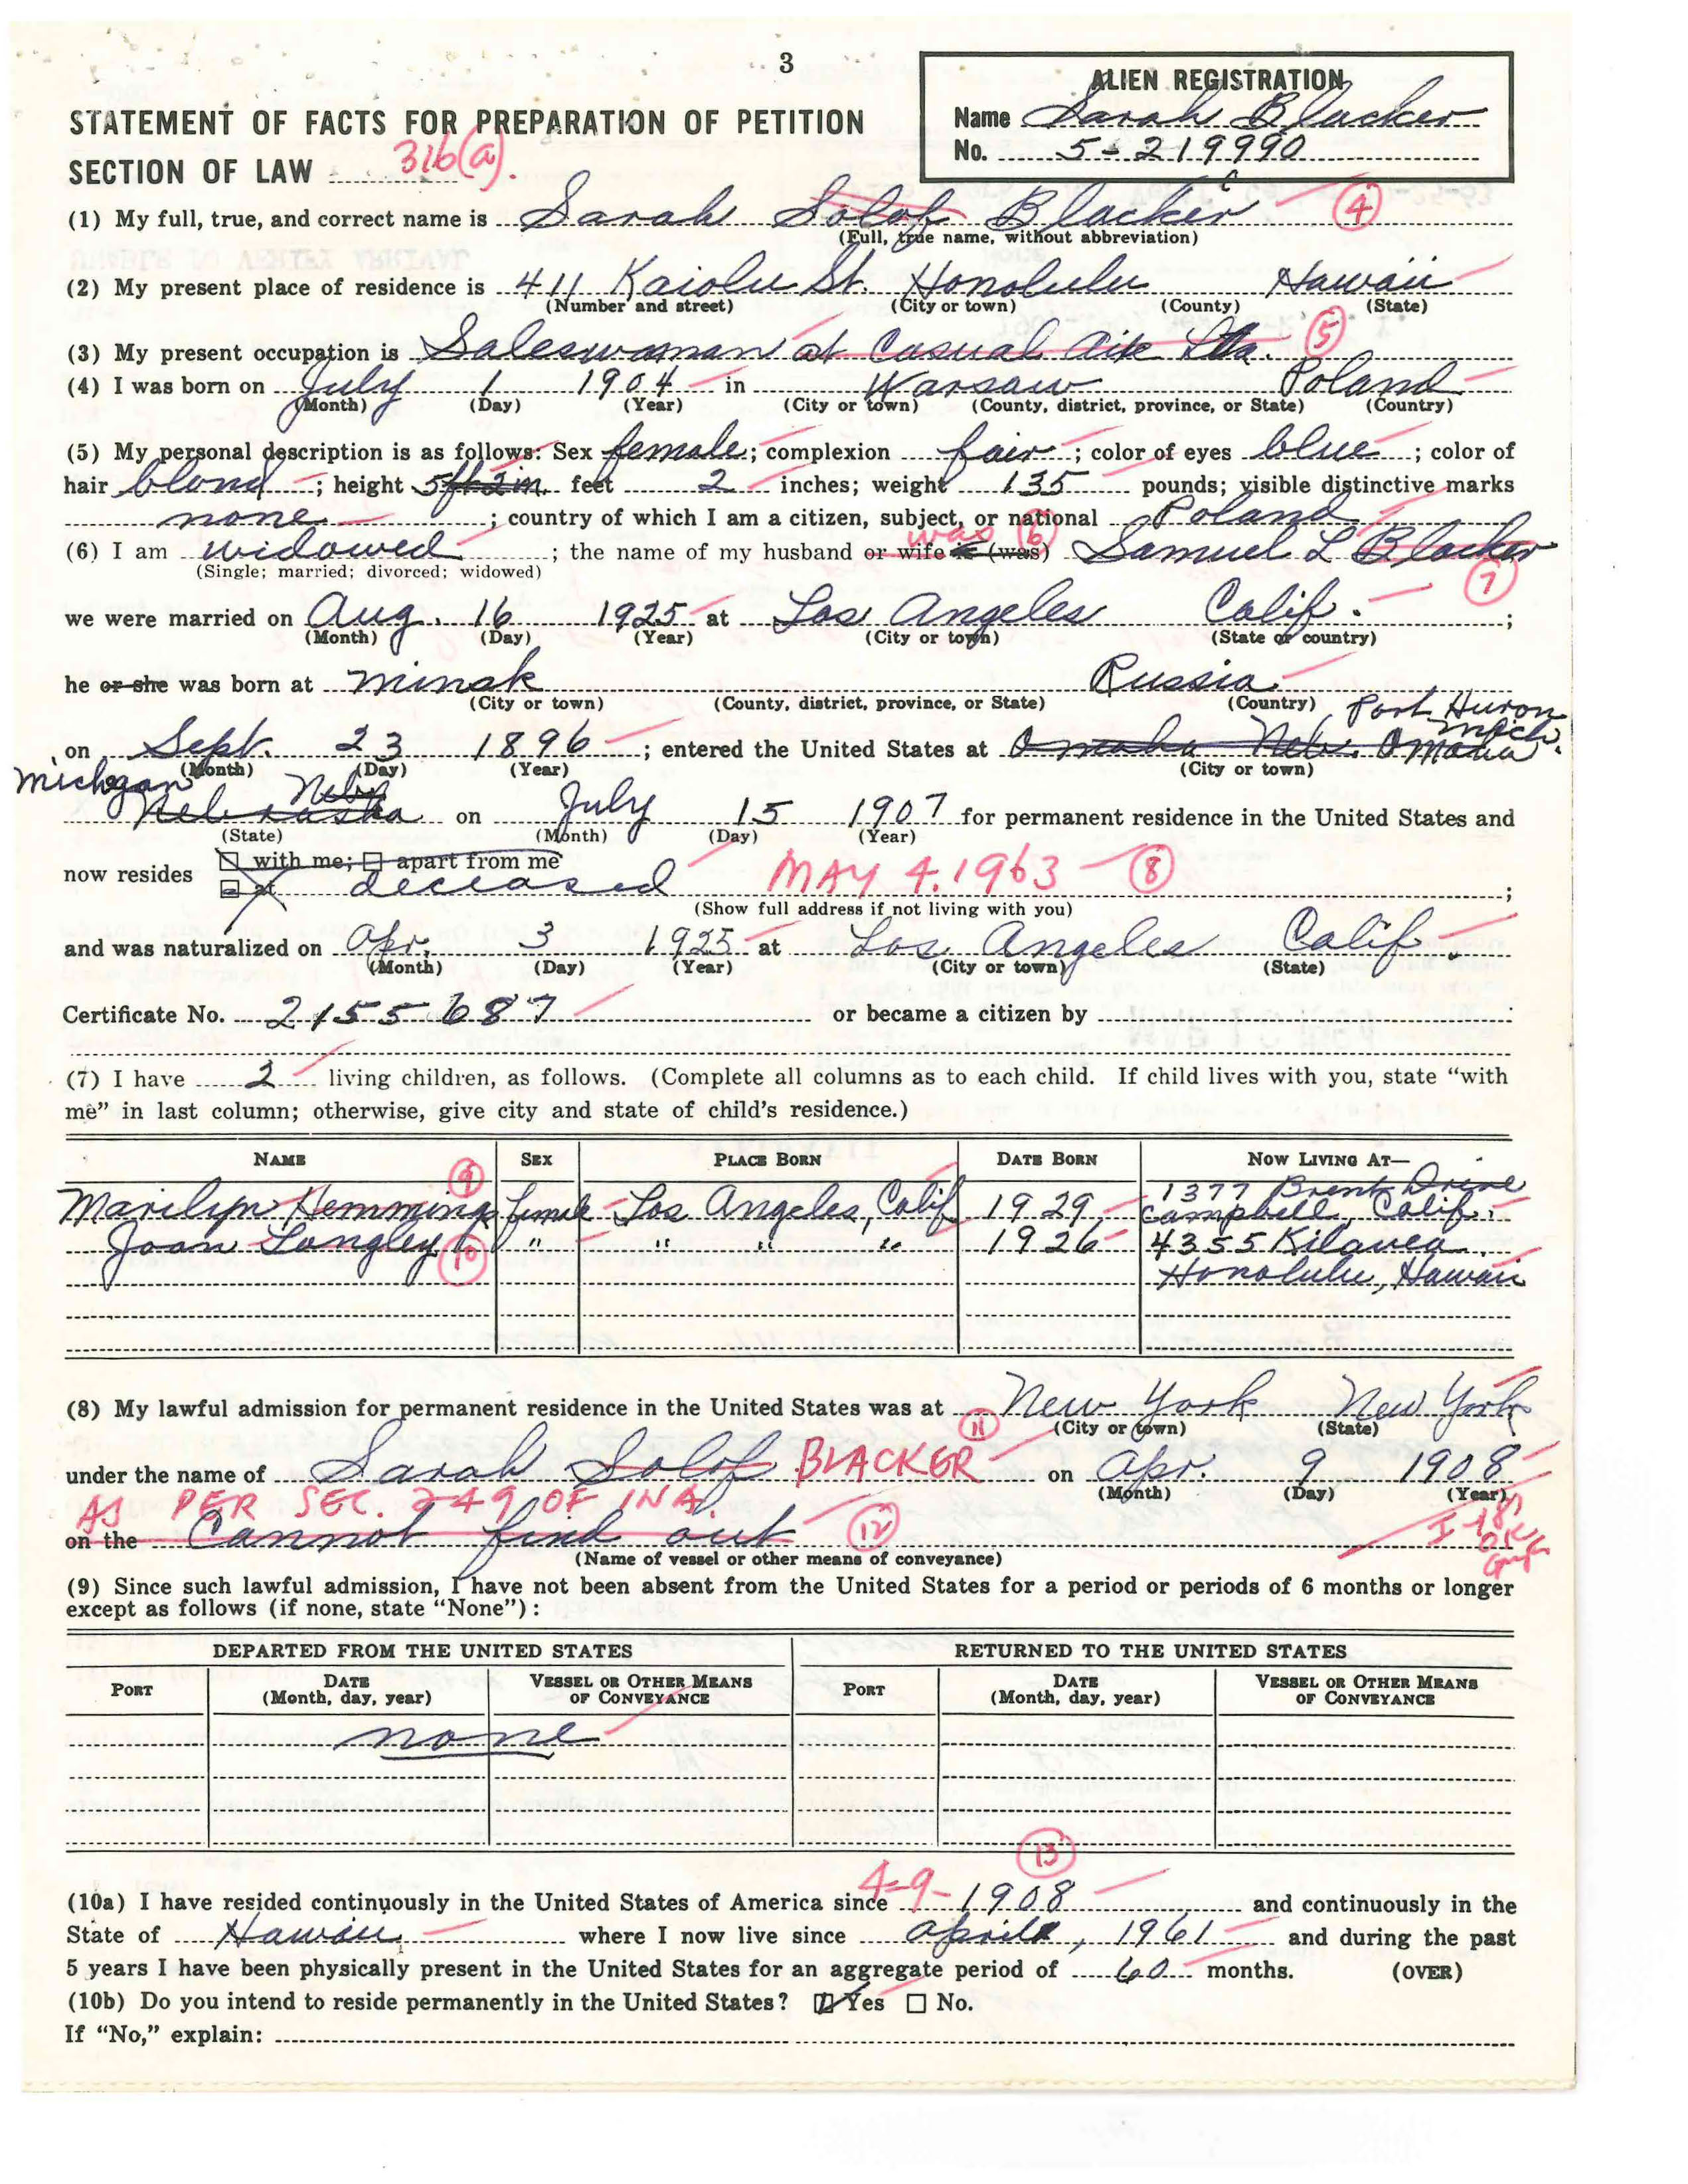 3
ALIEN REGISTRATION
Name Sarah Blacker
No. 5-219990
STATEMENT OF FACTS FOR PREPARATION OF PETITION
SECTION OF LAW 316(a).
(1) My full, true, and correct name is Sarah Solof Blacker 4
(Full, true name, without abbreviation)
(2) My present place of residence is 411 Kaiolu St. Honolulu Hawaii
(Number and street) (City or town) (County) (State)
(3) My present occupation is Saleswoman at Casual Aire Ltd. 5
(4) I was born on July 1 1904 in Warsaw Poland
(Month) (Day) (Year) (City or town) (County, district, province, or State) (Country)
(5) My personal description is as follows: Sex female; complexion fair; color of eyes blue; color of
hair blond; height 5 ft 2 in. feet 2 inches; weight 135 pounds; visible distinctive marks
none; country of which I am a citizen, subject, or national Poland
was 6
(6) I am widowed; the name of my husband or wife is (was) Samuel L Blacker
(Single; married; divorced; widowed) 7
we were married on Aug. 16 1925 at Los Angeles Calif.;
(Month) (Day) (Year) (City or town) (State or country)
he or she was born at Minsk Russia
(City or town) (County, district, province, or State) (Country) Port Huron
Mich.
on Sept. 23 1896; entered the United States at Omaha Neb. Omaha
(Month) (Day) (Year) (City or town)
Michigan Neb
Nebraska on July 15 1907 for permanent residence in the United States and
(State) (Month) (Day) (Year)
now resides with me; apart from me
at deceased MAY 4. 1963 8;
(Show full address if not living with you)
and was naturalized on Apr. 3 1925 at Los Angeles Calif.
(Month) (Day) (Year) (City or town) (State)
Certificate No. 2155687 or became a citizen by
(7) I have 2 living children, as follows. (Complete all columns as to each child. If child lives with you, state "with
me" in last column; otherwise, give city and state of child's residence.)
NAME SEX PLACE BORN DATE BORN NOW LIVING AT—
9 1377 Brent Drive
Marilyn Hemmings female Los Angeles, Calif 1929 Campbell, Calif.
Joan Langley 10 " " " " 1926 4355 Kilauea
Honolulu, Hawaii
(8) My lawful admission for permanent residence in the United States was at New York New York
11 (City or town) (State)
under the name of Sarah Solof BLACKER on Apr. 9 1908
(Month) (Day) (Year)
AS PER SEC. 249 OF INA
on the Cannot find out 12 I-181 OK
(Name of vessel or other means of conveyance)
(9) Since such lawful admission, I have not been absent from the United States for a period or periods of 6 months or longer
except as follows (if none, state "None"):
DEPARTED FROM THE UNITED STATES RETURNED TO THE UNITED STATES
PORT DATE (Month, day, year) VESSEL OR OTHER MEANS OF CONVEYANCE PORT DATE (Month, day, year) VESSEL OR OTHER MEANS OF CONVEYANCE
none
13
(10a) I have resided continuously in the United States of America since 4-9-1908 and continuously in the
State of Hawaii where I now live since April, 1961 and during the past
5 years I have been physically present in the United States for an aggregate period of 60 months. (OVER)
(10b) Do you intend to reside permanently in the United States? Yes No.
If "No," explain: